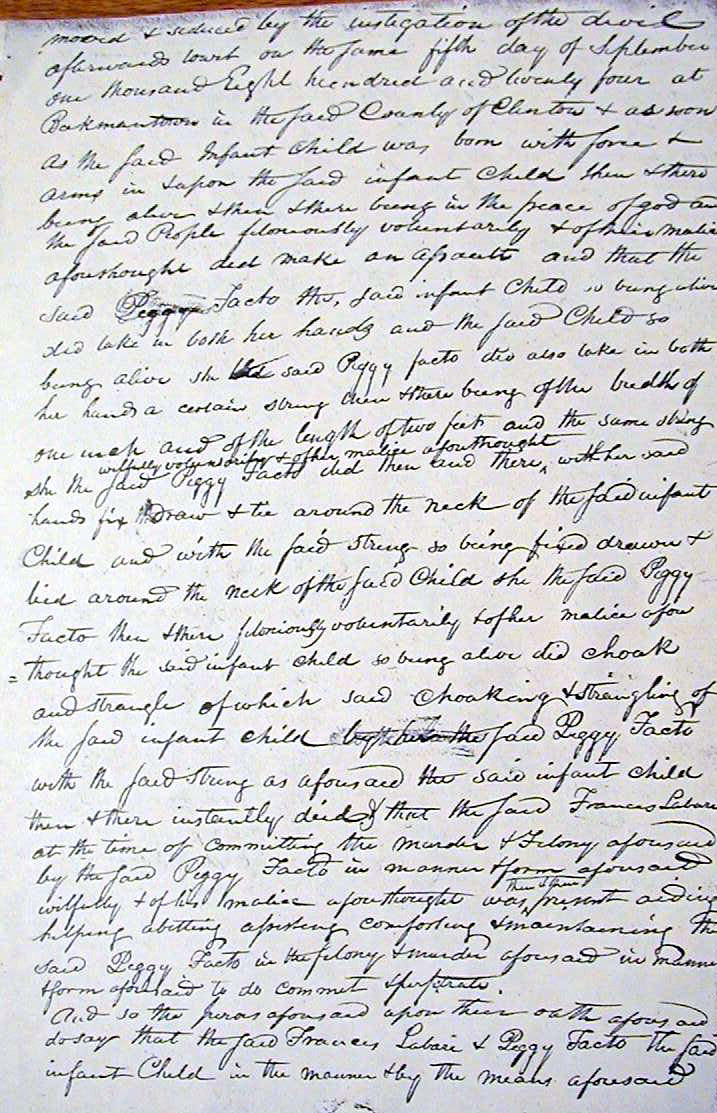 moved & seduced by the instigation of the devil
afterwards towit on the same fifth day of September
one thousand Eight hundred and twenty four at
Bakmantown in the said County of Clinton & as soon
as the said Infant Child was born with force &
arms in & upon the said infant Child then & there
being alive & then & there being in the peace of god an
the said People feloniously voluntarily & of their malice
aforethought did make an assault and that the
said Peggy Facto the, said infant Child so being alive
did take in both her hands and the said Child so
being alive she the said Peggy facto did also take in both
her hands a certain string then & there being of the bredth of
one inch and of the length of two feet and the same string
wilfully voluntarily & of her malice aforethought
she the said Peggy Facto did then and there ^ with her said
hands fix draw & tie around the neck of the said infant
Child and with the said string so being fixed drawn &
tied around the neck of the said Child she the said Peggy
Facto then & there feloniously voluntarily & of her malice afore
= thought the said infant child so being alive did choak
and strangle of which said choaking & strangling of
the said infant child said Peggy Facto
with the said string as aforesaid the said infant child
then & there instantly died & that the said Frances Labare
at the time of committing the murder & Felony aforesaid
by the said Peggy Facto in manner & form aforesaid
then & there
wilfully & of his malice aforethought was ^ present aiding
helping abetting assisting comforting & maintaining the
said Peggy Facto in the felony & murder aforesaid in manner
& form aforesaid to do commit & perpetrate.
And so the juros aforesaid upon their oath aforesaid
do say that the said Frances Labare & Peggy Facto the said
infant Child in the manner & by the means aforesaid